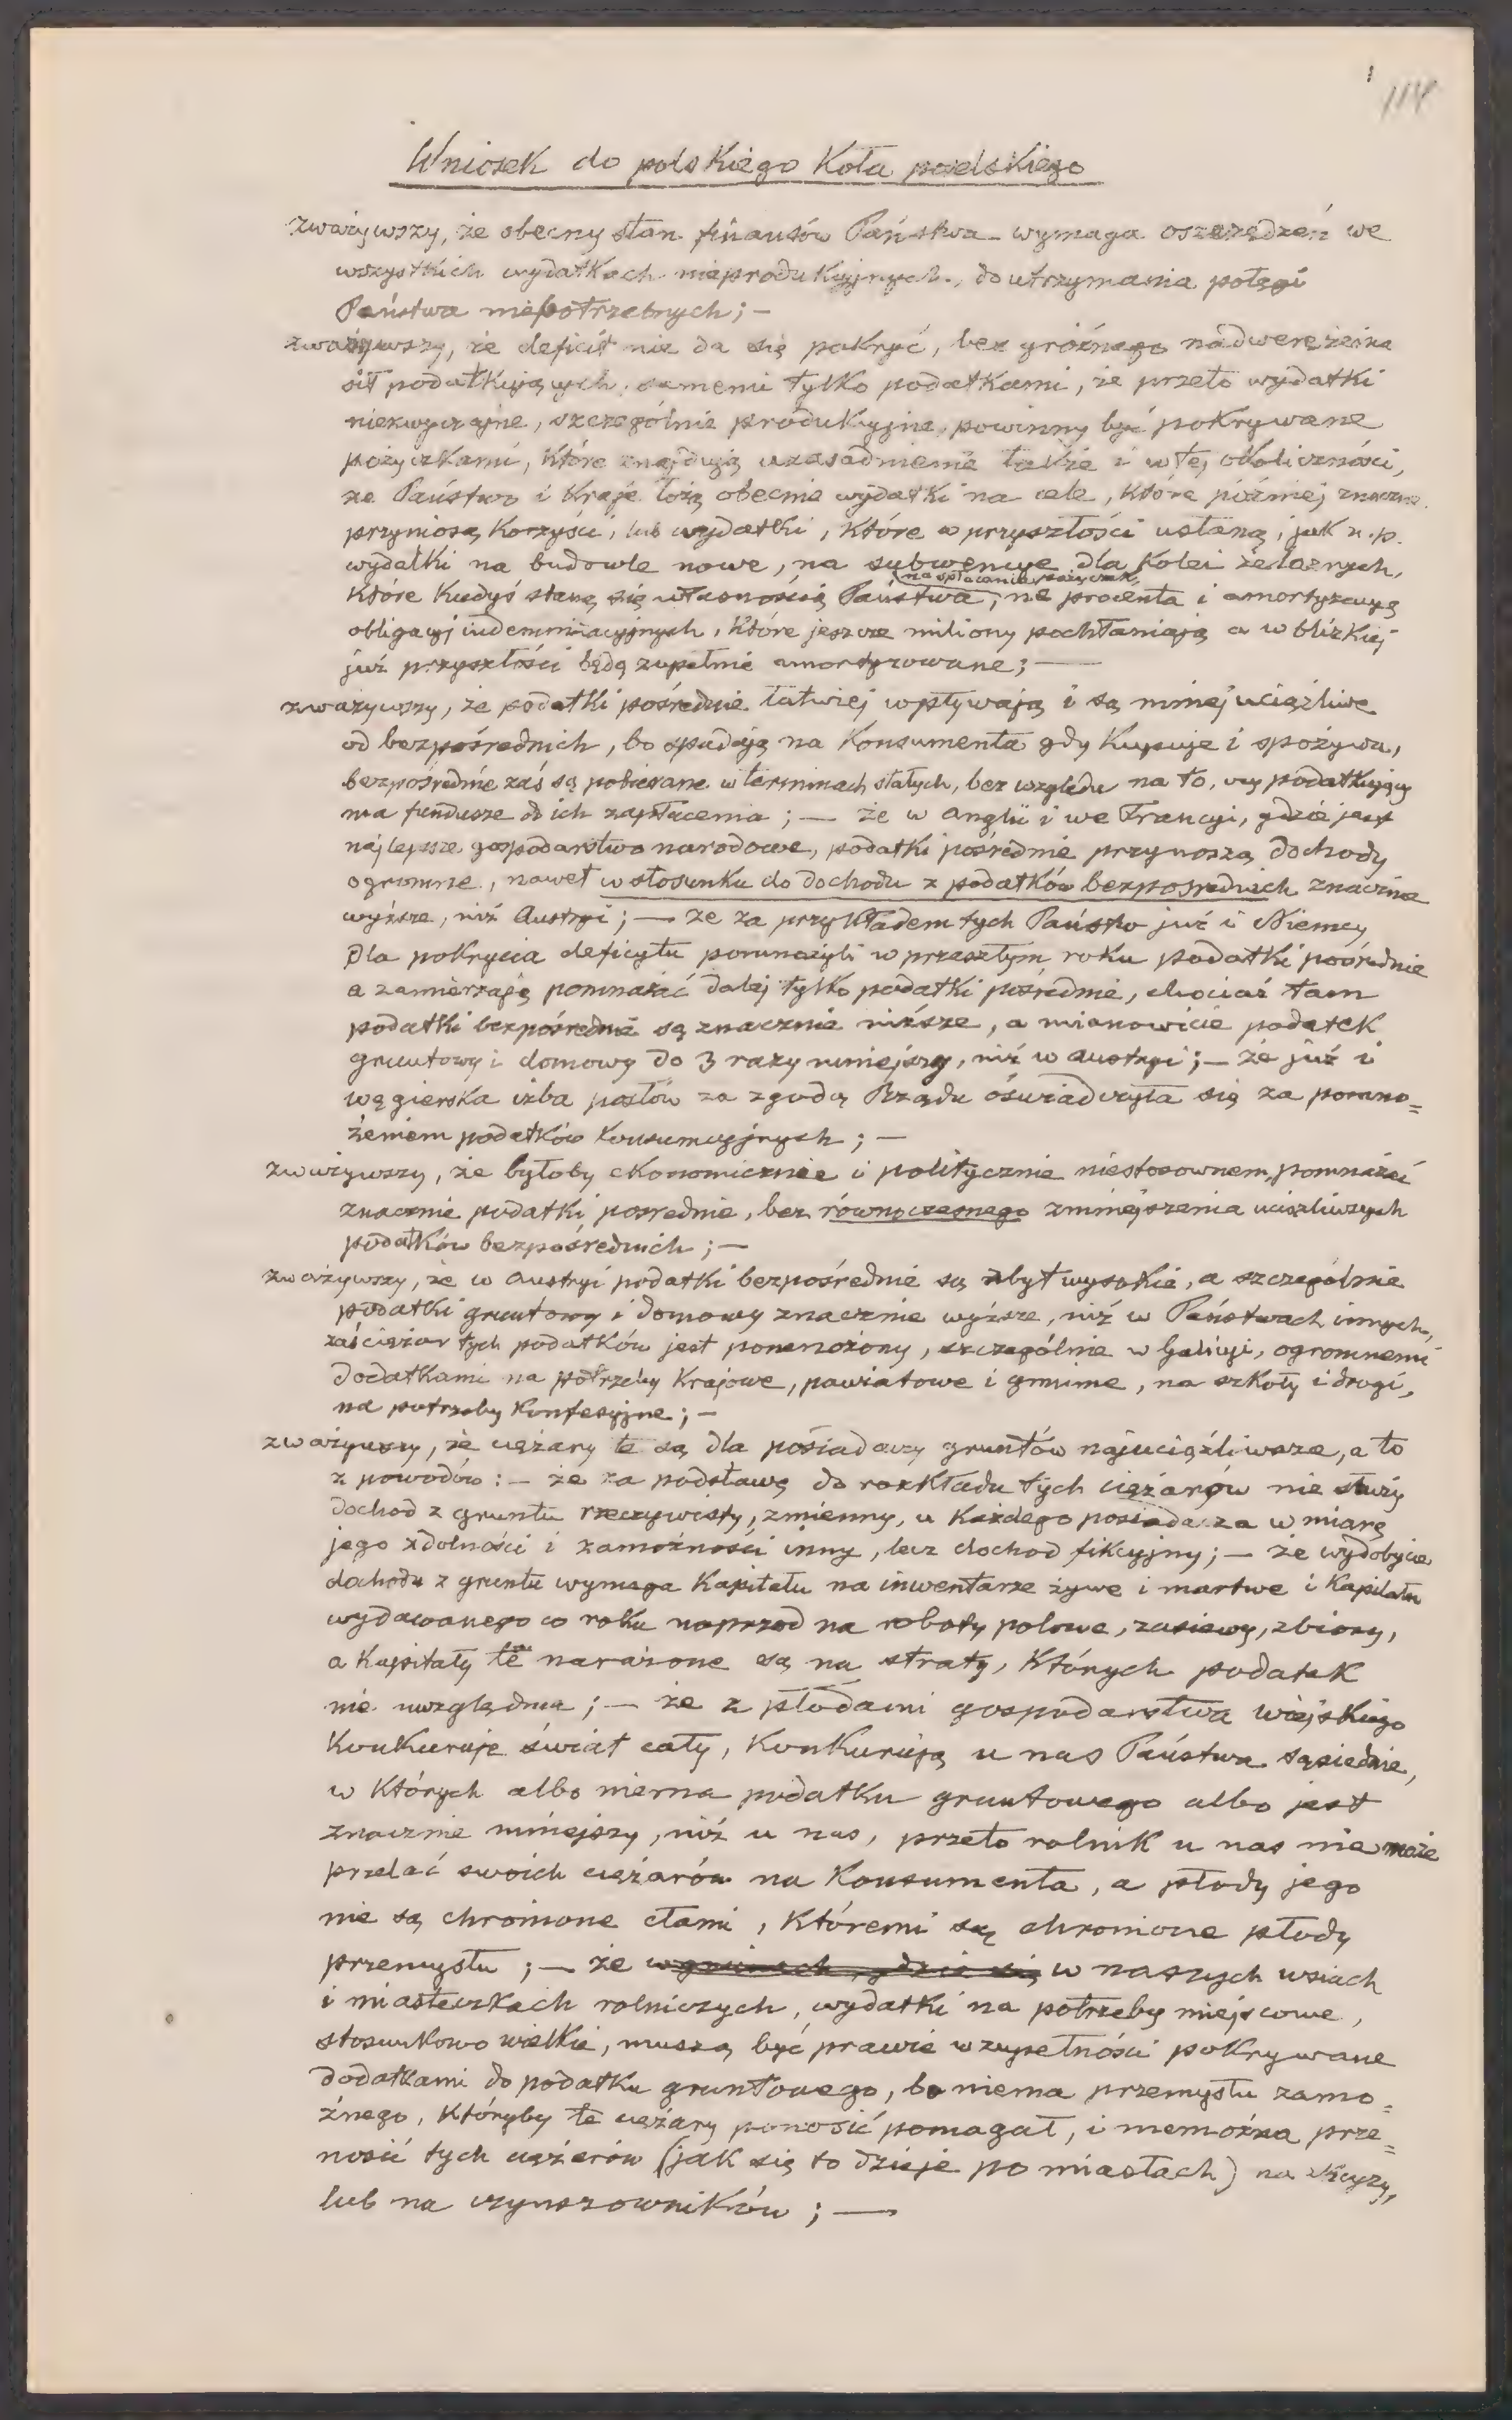 114
Wniosek do polskiego Koła poselskiego
zważywszy, że obecny stan finansów Państwa wymaga oszczędzeń we
wszystkich wydatkach nieprodukcyjnych, do utrzymania potęgi
Państwa niepotrzebnych; —
zważywszy, że deficit nie da się pokryć, bez groźnego nadwerężenia
sił podatkujących, samemi tylko podatkami, że przeto wydatki
niezwyczajne, szczególnie produkcyjne, powinny być pokrywane
pożyczkami, które znajdują uzasadnienie także i w tej okoliczności,
że Państwo i Kraje łożą obecnie wydatki na cele, które później znaczne
przyniosą korzyści, lub wydatki, które w przyszłości ustaną, jak n. p.
wydatki na budowle nowe, na subwencye dla kolei żelaznych,
na spłacanie pożyczek,
które kiedyś staną się własnością Państwa, na procenta i amortyzacyą
obligacyj indemnizacyjnych, które jeszcze miliony pochłaniają a w blizkiej
już przyszłości będą zupełnie amortyzowane; —
zważywszy, że podatki pośrednie łatwiej wpływają i są mniej uciążliwe
od bezpośrednich, bo spadają na Konsumenta gdy kupuje i spożywa,
bezpośrednie zaś są pobierane w terminach stałych, bez względu na to, czy podatkujący
ma fundusze do ich zapłacenia; — że w Anglii i we Francyi, gdzie jest
najlepsze gospodarstwo narodowe, podatki pośrednie przynoszą dochody
ogromne, nawet w stosunku do dochodu z podatków bezpośrednich znacznie
wyższe, niż Austryi; — że za przykładem tych Państw już i Niemcy
dla pokrycia deficytu pomnożyli w przeszłym roku podatki pośrednie
a zamierzają pomnażać dalej tylko podatki pośrednie, chociaż tam
podatki bezpośrednie są znacznie niższe, a mianowicie podatek
gruntowy i domowy do 3 razy mniejszy, niż w Austryi; — że już i
węgierska izba posłów za zgodą Rządu oświadczyła się za pomno=
żeniem podatków konsumcyjnych; —
zważywszy, że byłoby ekonomicznie i politycznie niestosownem, pomnażać
znacznie podatki pośrednie, bez równoczesnego zmniejszenia uciążliwszych
podatków bezpośrednich; —
zważywszy, że w Austryi podatki bezpośrednie są zbyt wysokie, a szczególnie
podatki gruntowy i domowy znacznie wyższe, niż w Państwach innych,
zaś ciężar tych podatków jest pomnożony, szczególnie w Galicyi, ogromnemi
dodatkami na potrzeby Krajowe, powiatowe i gminne, na szkoły i drogi,
na potrzeby konfesyjne; —
zważywszy, że ciężary te są dla posiadaczy gruntów najuciążliwsze, a to
z powodów: — że za podstawę do rozkładu tych ciężarów nie służy
dochod z gruntu rzeczywisty, zmienny, u każdego posiadacza w miarę
jego zdolności i zamożności inny, lecz dochod fikcyjny; — że wydobycie
dochodu z gruntu wymaga Kapitału na inwentarze żywe i martwe i Kapitału
wydawanego co roku naprzod na roboty polowe, zasiewy, zbiory,
a Kapitały te narażone są na straty, których podatek
nie uwzględnia; — że z płodami gospodarstwa wiejskiego
konkuruje świat cały, konkurują u nas Państwa sąsiednie,
w których albo niema podatku gruntowego albo jest
znacznie mniejszy, niż u nas, przeto rolnik u nas nie może
przelać swoich ciężarów na Konsumenta, a płody jego
nie są chronione cłami, któremi są chronione płody
przemysłu; — że w gminach, gdzie się w naszych wsiach
i miasteczkach rolniczych, wydatki na potrzeby miejscowe,
stosunkowo wielkie, muszą być prawie w zupełności pokrywane
dodatkami do podatku gruntowego, bo niema przemysłu zamo=
żnego, któryby te ciężary ponosić pomagał, i niemożna prze=
nosić tych ciężarów (jak się to dzieje po miastach) na
lub na czynszowników; —